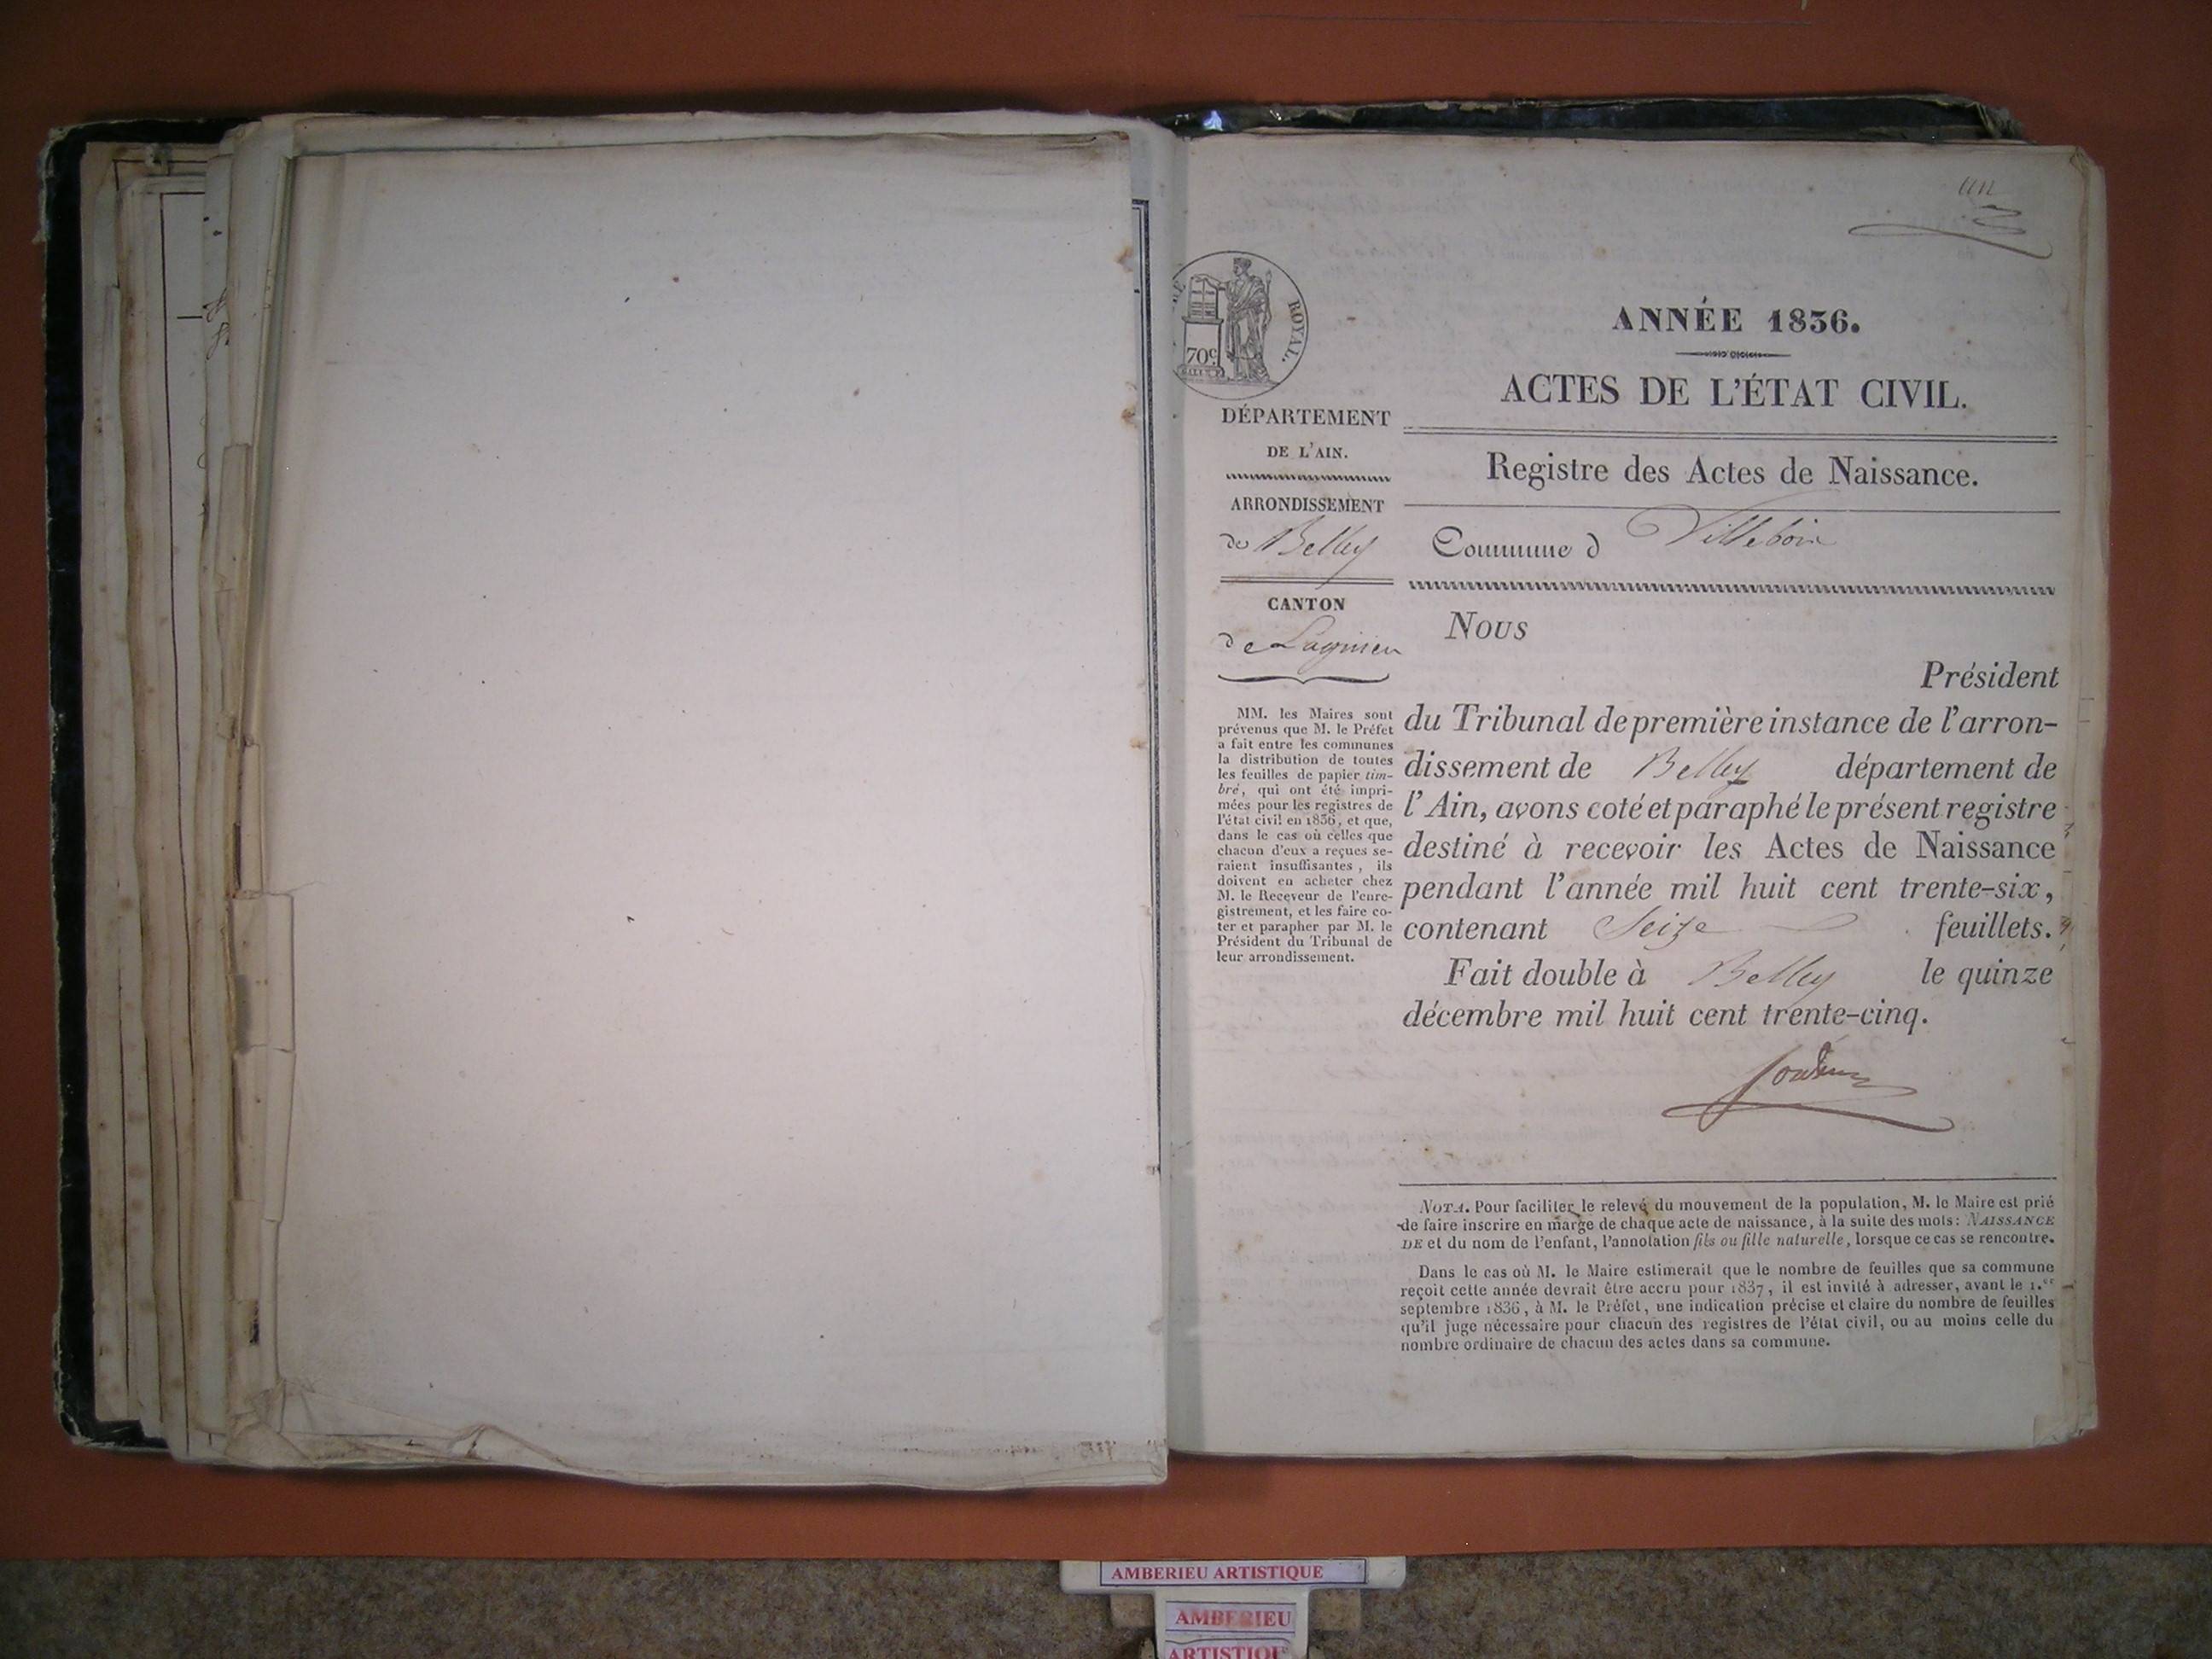 un
ROYAL.
70c
ANNÉE 1836.
ACTES DE L'ÉTAT CIVIL.
Registre des Actes de Naissance.
Commune d Villebois
DÉPARTEMENT
DE L'AIN.
ARRONDISSEMENT
de Belley
CANTON
de Lagnieu
MM. les Maires sont
prévenus que M. le Préfet
a fait entre les communes
la distribution de toutes
les feuilles de papier tim-
bré, qui ont été impri-
mées pour les registres de
l'état civil en 1836, et que,
dans le cas où celles que
chacun d'eux a reçues se-
raient insuffisantes, ils
doivent en acheter chez
M. le Receveur de l'enre-
gistrement, et les faire co-
ter et parapher par M. le
Président du Tribunal de
leur arrondissement.
Nous
Président
du Tribunal de première instance de l'arron-
dissement de Belley département de
l'Ain, avons coté et paraphé le présent registre
destiné à recevoir les Actes de Naissance
pendant l'année mil huit cent trente-six,
contenant Seize feuillets.
Fait double à Belley le quinze
décembre mil huit cent trente-cinq.
NOTA. Pour faciliter le relevé du mouvement de la population, M. le Maire est prié
de faire inscrire en marge de chaque acte de naissance, à la suite des mots: NAISSANCE
DE et du nom de l'enfant, l'annotation fils ou fille naturelle, lorsque ce cas se rencontre.
Dans le cas où M. le Maire estimerait que le nombre de feuilles que sa commune
reçoit cette année devrait être accru pour 1837, il est invité à adresser, avant le 1.er
septembre 1836, à M. le Préfet, une indication précise et claire du nombre de feuilles
qu'il juge nécessaire pour chacun des registres de l'état civil, ou au moins celle du
nombre ordinaire de chacun des actes dans sa commune.
AMBERIEU ARTISTIQUE
AMBERIEU
ARTISTIQUE